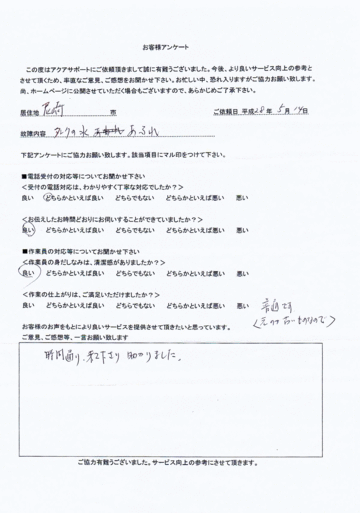 お客様アンケート
この度はアクアサポートにご依頼頂きまして誠に有難うございました。今後、より良いサービス向上の参考と
させて頂くため、率直なご意見、ご感想をお聞かせ下さい。お忙しい中、恐れ入りますがご協力お願い致します。
尚、ホームページに公開させていただく場合もございますので、あらかじめご了承下さい。
居住地 尼崎 市 ご依頼日 平成28年 5月 14日
故障内容 タンクの水 あふれ
下記アンケートにご協力お願い致します。該当項目にマル印をつけて下さい。
■電話受付の対応等についてお聞かせ下さい
<受付の電話対応は、わかりやすく丁寧な対応でしたか?>
良い どちらかといえば良い どちらでもない どちらかといえば悪い 悪い
<お伝えしたお時間どおりにお伺いすることができていましたか?>
良い どちらかといえば良い どちらでもない どちらかといえば悪い 悪い
■作業員の対応等についてお聞かせ下さい
<作業員の身だしなみは、清潔感がありましたか?>
良い どちらかといえば良い どちらでもない どちらかといえば悪い 悪い
<作業の仕上がりは、ご満足いただけましたか?>
良い どちらかといえば良い どちらでもない どちらかといえば悪い 悪い 普通です
お客様のお声をもとにより良いサービスを提供させて頂きたいと思っています。
ご意見、ご感想等、一言お願い致します
時間通り、来て下さり 助かりました。
ご協力有難うございました。サービス向上の参考にさせて頂きます。